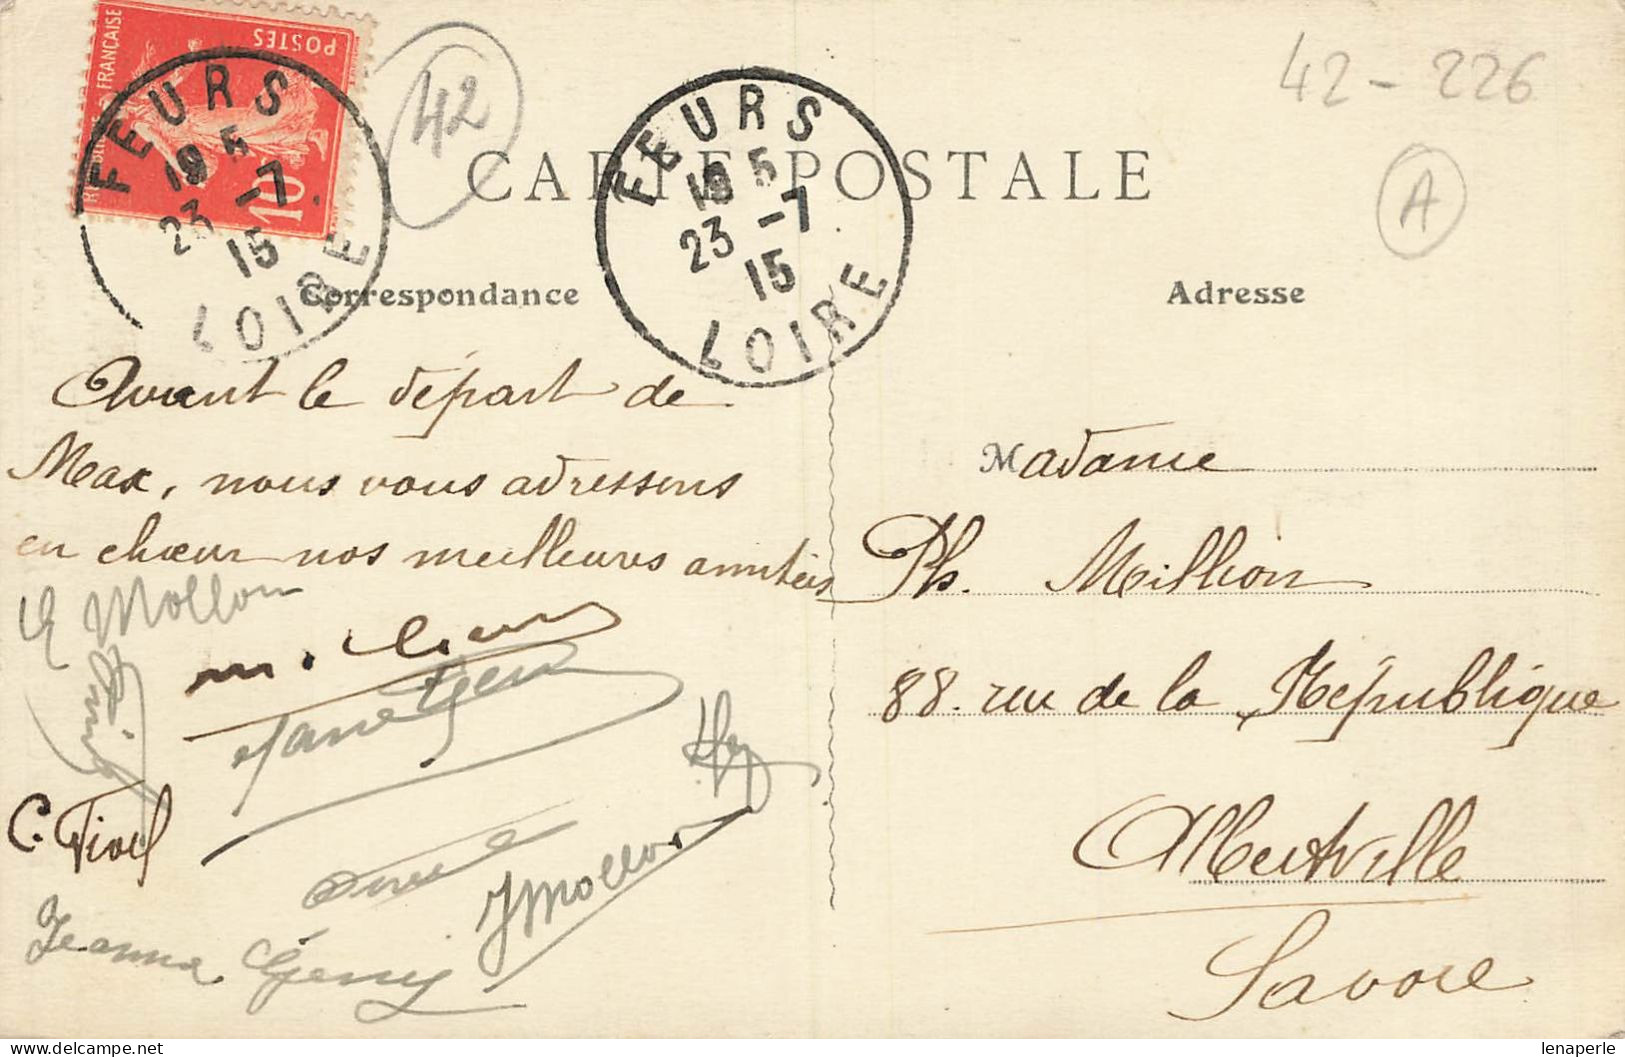 RÉPUBLIQUE FRANÇAISE
POSTES
10
FEURS
18 5
23 -7
15
LOIRE
42
FEURS
18 5
23 -7
15
LOIRE
42-226
A
CARTE POSTALE
Correspondance
Adresse
Avant le départ de
Max, nous vous adressons
en chœur nos meilleures amitiés
Mollon
C. Fiool
J Mollon
Jeanne Gény
Madame
Ph. Million
88. rue de la République
Albertville
Savoie
lenaperle